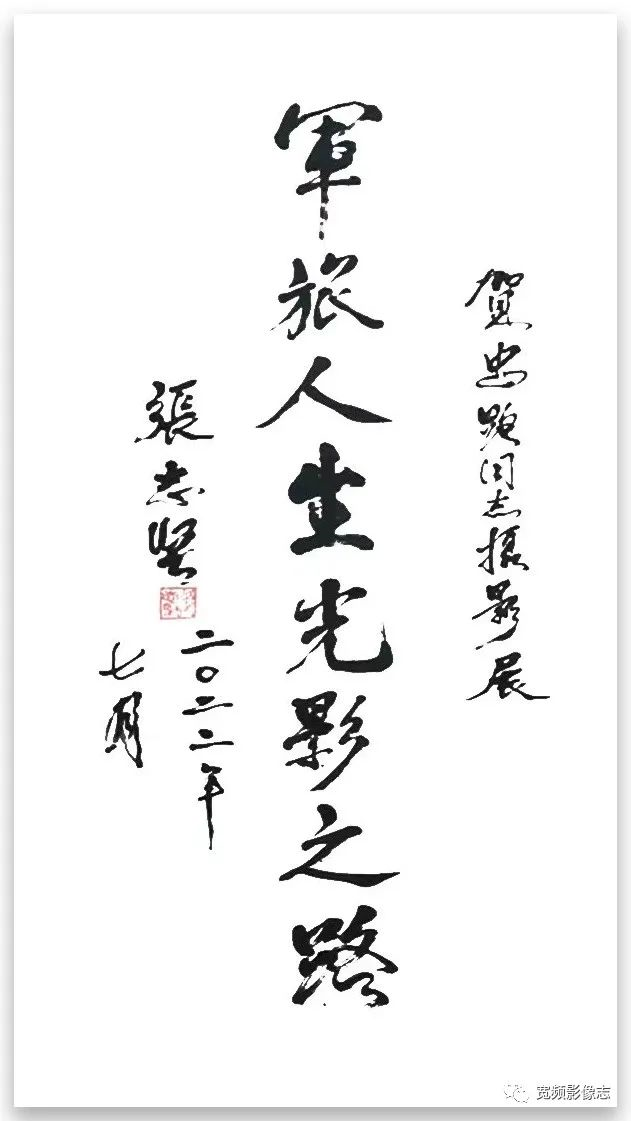 賀忠路同志攝影展
軍旅人生光影之路
張志堅
二〇二二年
七月
宽频影像志